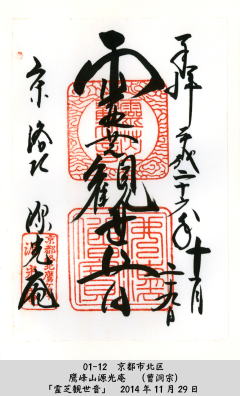 奉拝 平成二十六年十一月二十九日
霊芝観世音
京洛北 源光庵
01-12 京都市北区
鷹峰山源光庵 (曹洞宗)
「霊芝観世音」 2014年11月29日